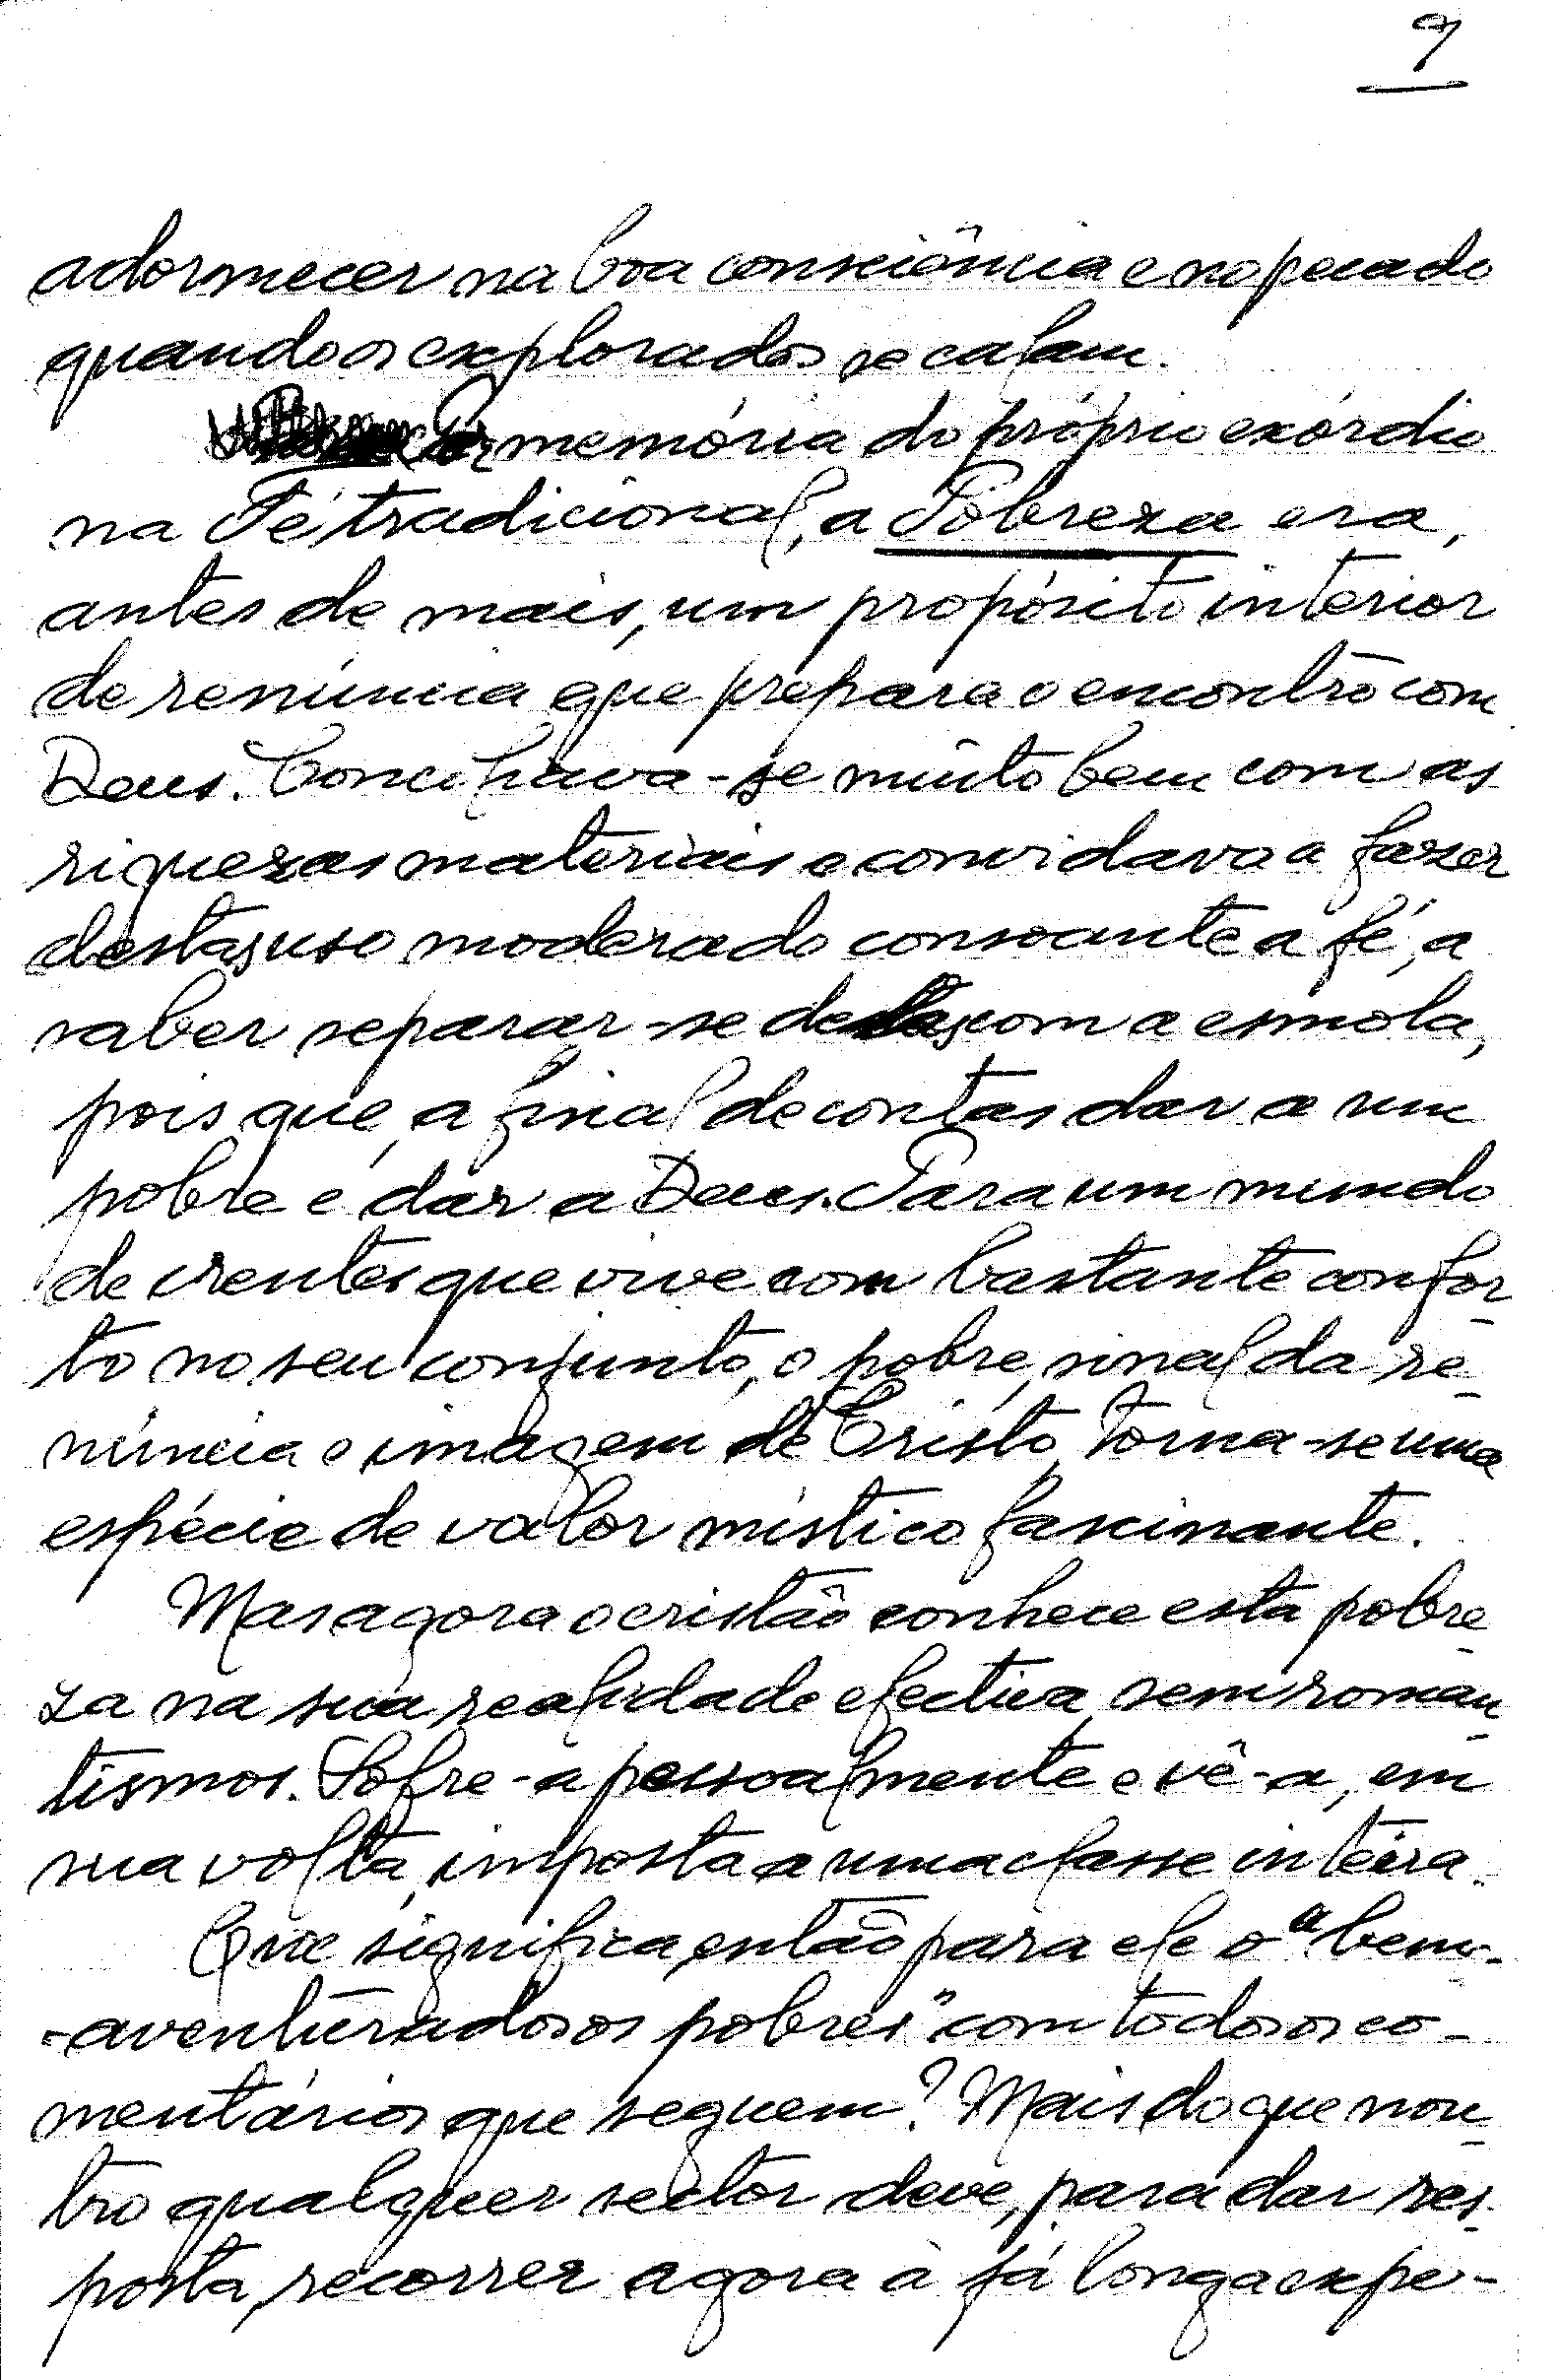 9
adormecer na boa consciência e no pecado
quando os explorados se calam.
memória do próprio exórdio
na Fé tradicional, a Pobreza era,
antes de mais, um propósito interior
de renúncia que prepara o encontro com
Deus. Conciliava-se muito bem com as
riquezas materiais e convidava a fazer
destas uso moderado consoante a fé, a
saber separar-se delas com a esmola,
pois que, afinal de contas dar a um
pobre é dar a Deus. Para um mundo
de crentes que vive com bastante confor-
to no seu conjunto, o pobre, sinal da re-
núncia e imagem de Cristo, torna-se uma
espécie de valor místico fascinante.
Mas agora o cristão conhece esta pobre-
za na sua realidade efectiva, sem roman-
tismos. Sofre-a pessoalmente e vê-a, em
sua volta, imposta a uma classe inteira.
Que significa, então para ele o "bem-
-aventurados os pobres" com todos os co-
mentários que seguem? Mais do que nou-
tro qualquer sector deve, para dar res-
posta, recorrer agora à já longa expe-